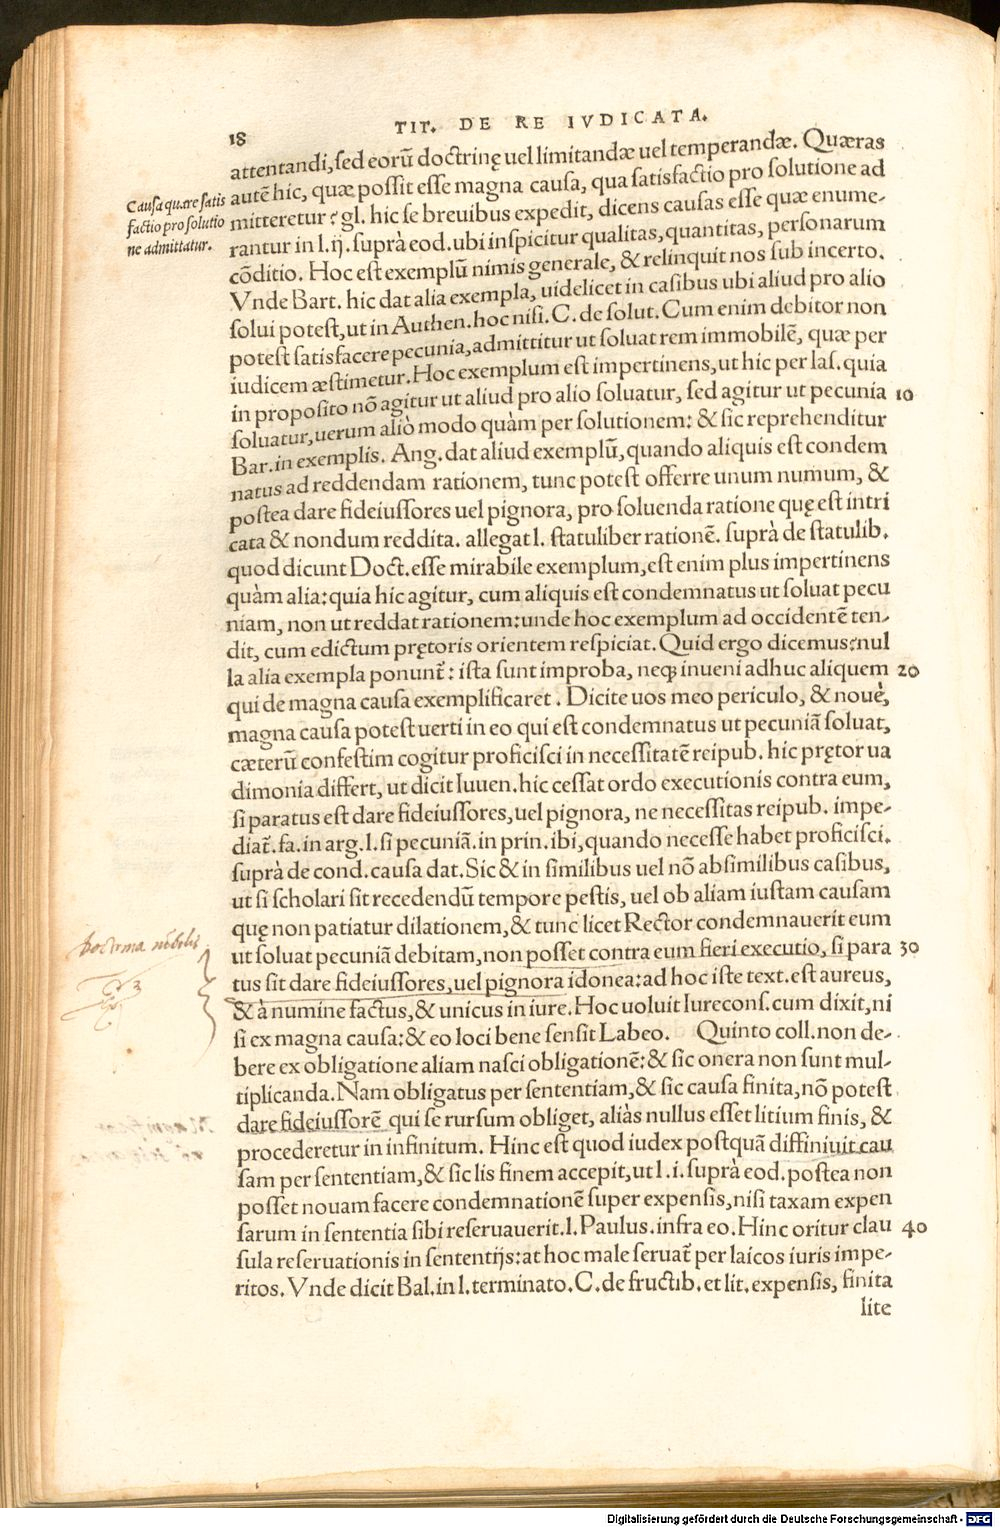 18
TIT. DE RE IVDICATA.
attentandi, sed eorũ doctrinę uel limitandæ uel temperandæ. Quæras
Causa quare satis
factio pro solutio
ne admittatur.
autẽ hic, quæ possit esse magna causa, qua satisfactio pro solutione ad
mitteretur? gl. hic se breuibus expedit, dicens causas esse quæ enume-
rantur in l. ij. suprà eod. ubi inspicitur qualitas, quantitas, personarum
cõditio. Hoc est exemplũ nimis generale, & relinquit nos sub incerto.
Vnde Bart. hic dat alia exempla, uidelicet in casibus ubi aliud pro alio
solui potest, ut in Authen. hoc nisi. C. de solut. Cum enim debitor non
potest satisfacere pecunia, admittitur ut soluat rem immobilẽ, quæ per
iudicem æstimetur. Hoc exemplum est impertinens, ut hic per Ias. quia
in proposito nõ agitur ut aliud pro alio soluatur, sed agitur ut pecunia 10
soluatur, uerum aliò modo quàm per solutionem: & sic reprehenditur
Bar. in exemplis. Ang. dat aliud exemplũ, quando aliquis est condem
natus ad reddendam rationem, tunc potest offerre unum numum, &
postea dare fideiussores uel pignora, pro soluenda ratione quę est intri
cata & nondum reddita. allegat l. statuliber rationẽ. suprà de statulib.
quod dicunt Doct. esse mirabile exemplum, est enim plus impertinens
quàm alia: quia hic agitur, cum aliquis est condemnatus ut soluat pecu
niam, non ut reddat rationem: unde hoc exemplum ad occidentẽ ten-
dit, cum edictum prętoris orientem respiciat. Quid ergo dicemus? nul
la alia exempla ponunt̃: ista sunt improba, neq; inueni adhuc aliquem 20
qui de magna causa exemplificaret. Dicite uos meo periculo, & nouè,
magna causa potest uerti in eo qui est condemnatus ut pecuniã soluat,
cæterũ confestim cogitur proficisci in necessitatẽ reipub. hic prętor ua
dimonia differt, ut dicit Iuuen. hic cessat ordo executionis contra eum,
si paratus est dare fideiussores, uel pignora, ne necessitas reipub. impe-
diat̃. fa. in arg. l. si pecuniã. in prin. ibi, quando necesse habet proficisci.
suprà de cond. causa dat. Sic & in similibus uel nõ absimilibus casibus,
ut si scholari sit recedendũ tempore pestis, uel ob aliam iustam causam
quę non patiatur dilationem, & tunc licet Rector condemnauerit eum
doctrina nobilis
ut soluat pecuniã debitam, non posset contra eum fieri executio, si para 30
tus sit dare fideiussores, uel pignora idonea: ad hoc iste text. est aureus,
& à numine factus, & unicus in iure. Hoc uoluit Iurecons. cum dixit, ni
si ex magna causa: & eo loci bene sensit Labeo. Quinto coll. non de-
bere ex obligatione aliam nasci obligationẽ: & sic onera non sunt mul-
tiplicanda. Nam obligatus per sententiam, & sic causa finita, nõ potest
dare fideiussorẽ qui se rursum obliget, aliàs nullus esset litium finis, &
procederetur in infinitum. Hinc est quod iudex postquã diffiniuit cau
sam per sententiam, & sic lis finem accepit, ut l. i. suprà eod. postea non
posset nouam facere condemnationẽ super expensis, nisi taxam expen
sarum in sententia sibi reseruauerit. l. Paulus. infra eo. Hinc oritur clau 40
sula reseruationis in sententijs: at hoc male seruat̃ per laicos iuris impe-
ritos. Vnde dicit Bal. in l. terminato. C. de fructib. et lit. expensis, finita
lite
Digitalisierung gefördert durch die Deutsche Forschungsgemeinschaft - DFG